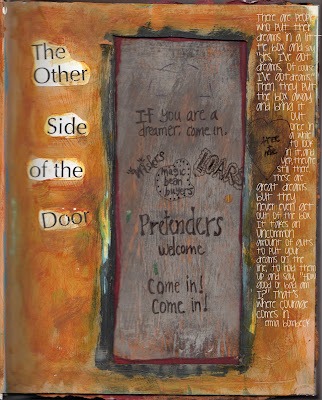 The
Other
Side
of the
Door
If you are a
dreamer, come in.
Wishers
LOARS
magic
bean
buyers
Pretenders
welcome
Come in!
Come in!
There are people
who put their
dreams in a litt
le box and say
"Yes, I've got
dreams, of course
I've got dreams."
Then they put
the box away
and bring it
out
once in
a while
to look
in it, and
yep, they're
still there.
These are
great dreams
but they
never even get
out of the box.
It takes an
uncommon
amount of guts
to put your
dreams on the
line, to hold them
up and say, "How
good or bad am
I?" That's
where courage
comes in.
erma bombeck
free
me